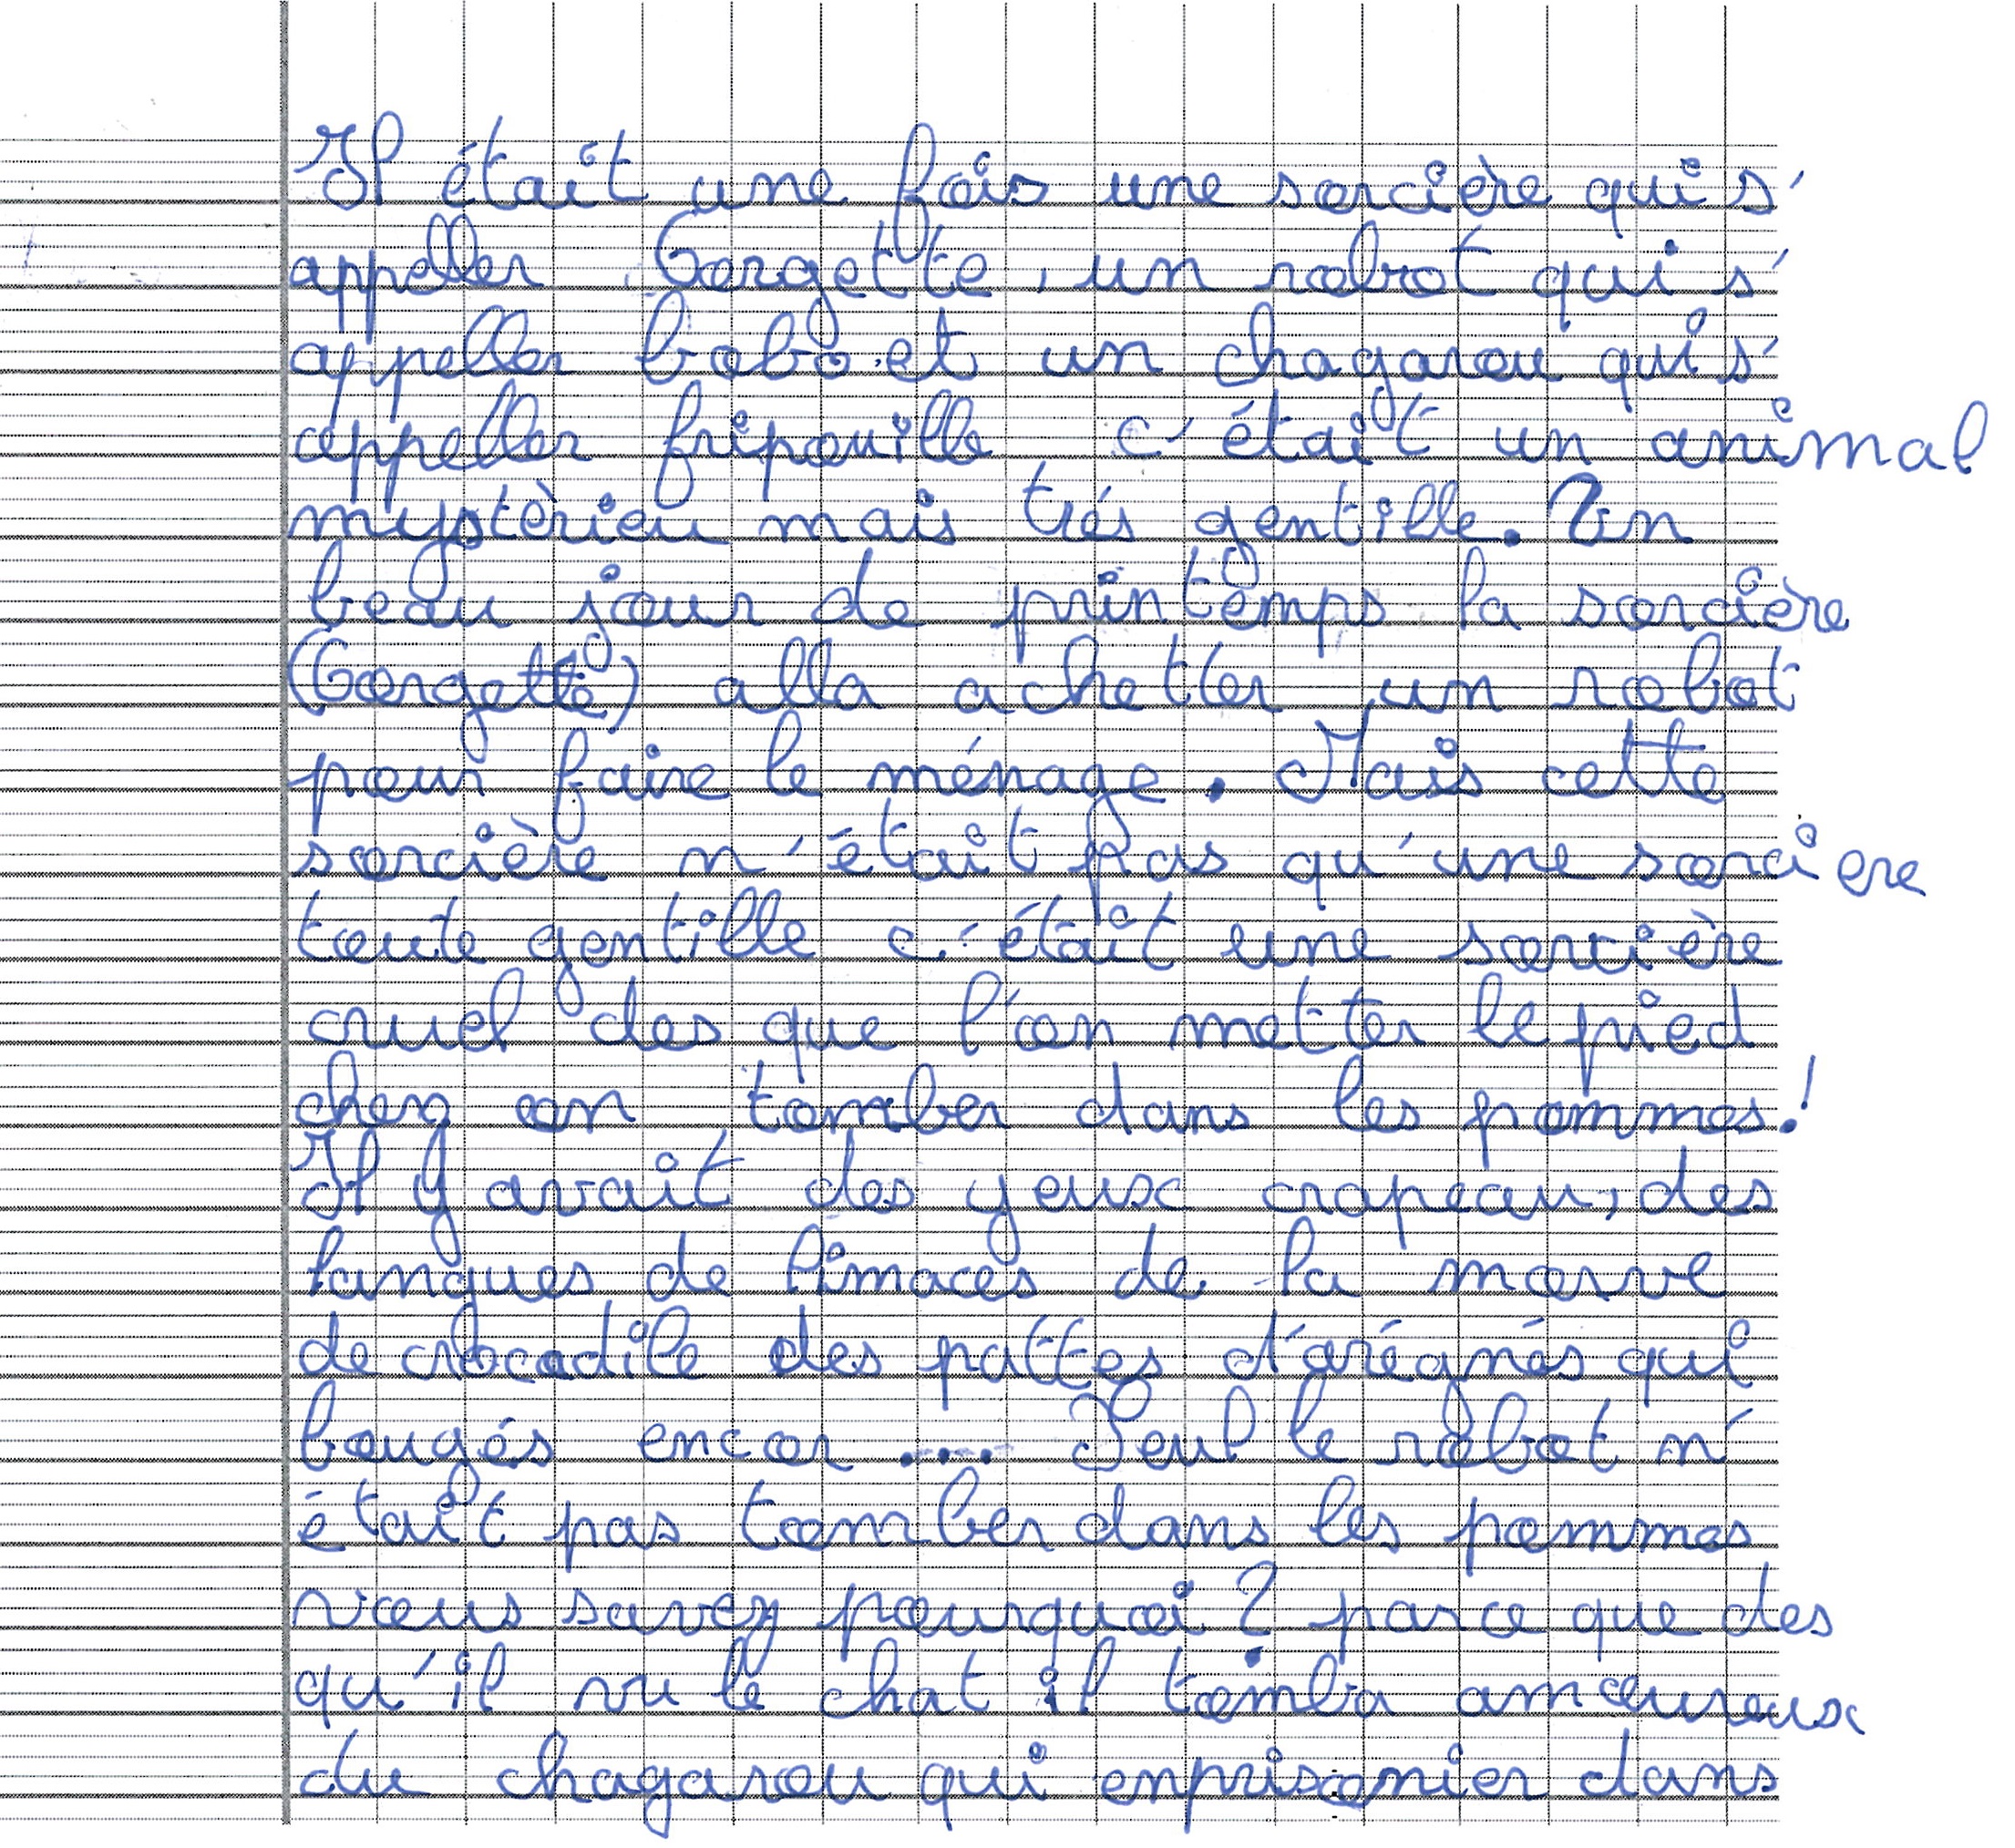 Il était une fois une sorcière qui s'
appeller Gorgette, un robot qui s'
appeller bobo et un chagarou qui s'
appeller fripouille c'était un animal
mystèrieu mais trés gentille. Un
beau jour de printemps la sorcière
(Gorgette) alla achetter un robot
pour faire le ménage. Mais cette
sorcière n'était pas qu'une sorciere
toute gentille c'était une sorcière
cruel des que l'on metter le pied
chez on tomber dans les pommes!
Il y avait des yeux crapeau, des
langues de limaces de la morve
de crocodile des pattes d'arégnés qui
bougés encor .... Seul le robot n'
était pas tomber dans les pommes
vous savez pourquoi? parce que des
qu'il vu le chat il tomba amoureux
du chagarou qui enprisonier dans